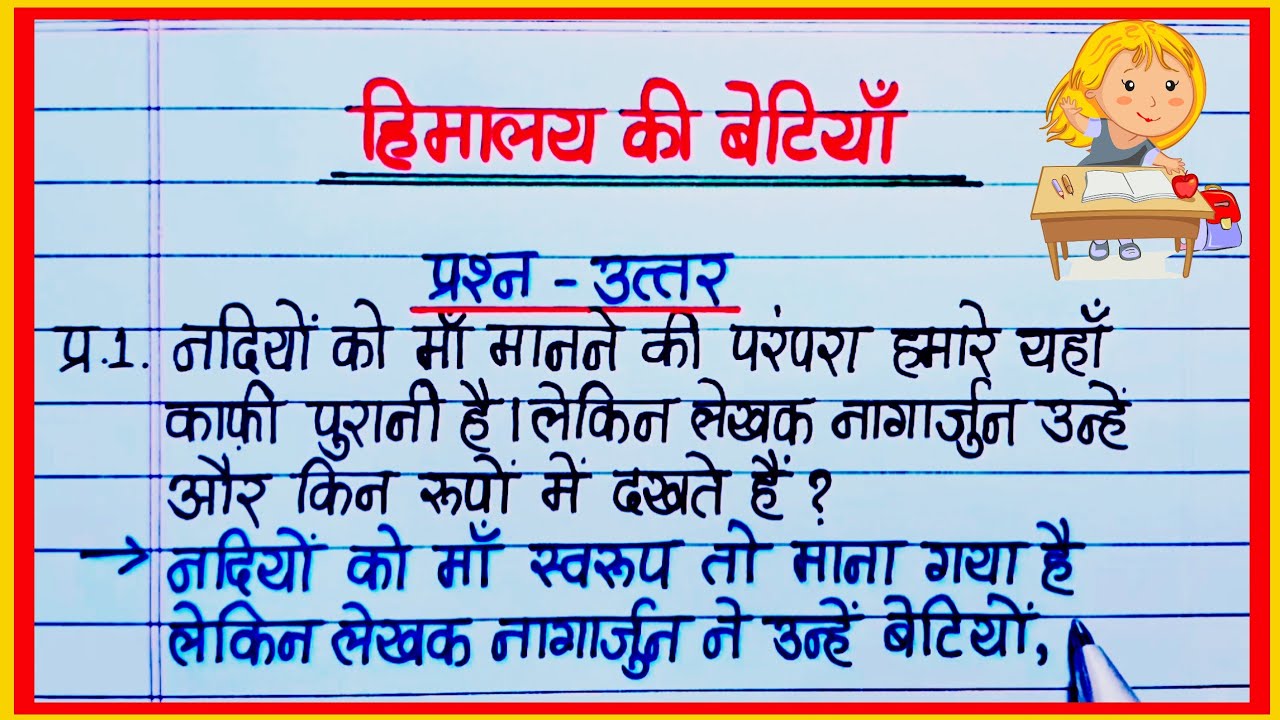 हिमालय की बेटियाँ
प्रश्न - उत्तर
प्र.1. नदियों को माँ मानने की परंपरा हमारे यहाँ
काफ़ी पुरानी है। लेकिन लेखक नागार्जुन उन्हें
और किन रूपों में दखते हैं ?
→ नदियों को माँ स्वरूप तो माना गया है
लेकिन लेखक नागार्जुन ने उन्हें बेटियों,